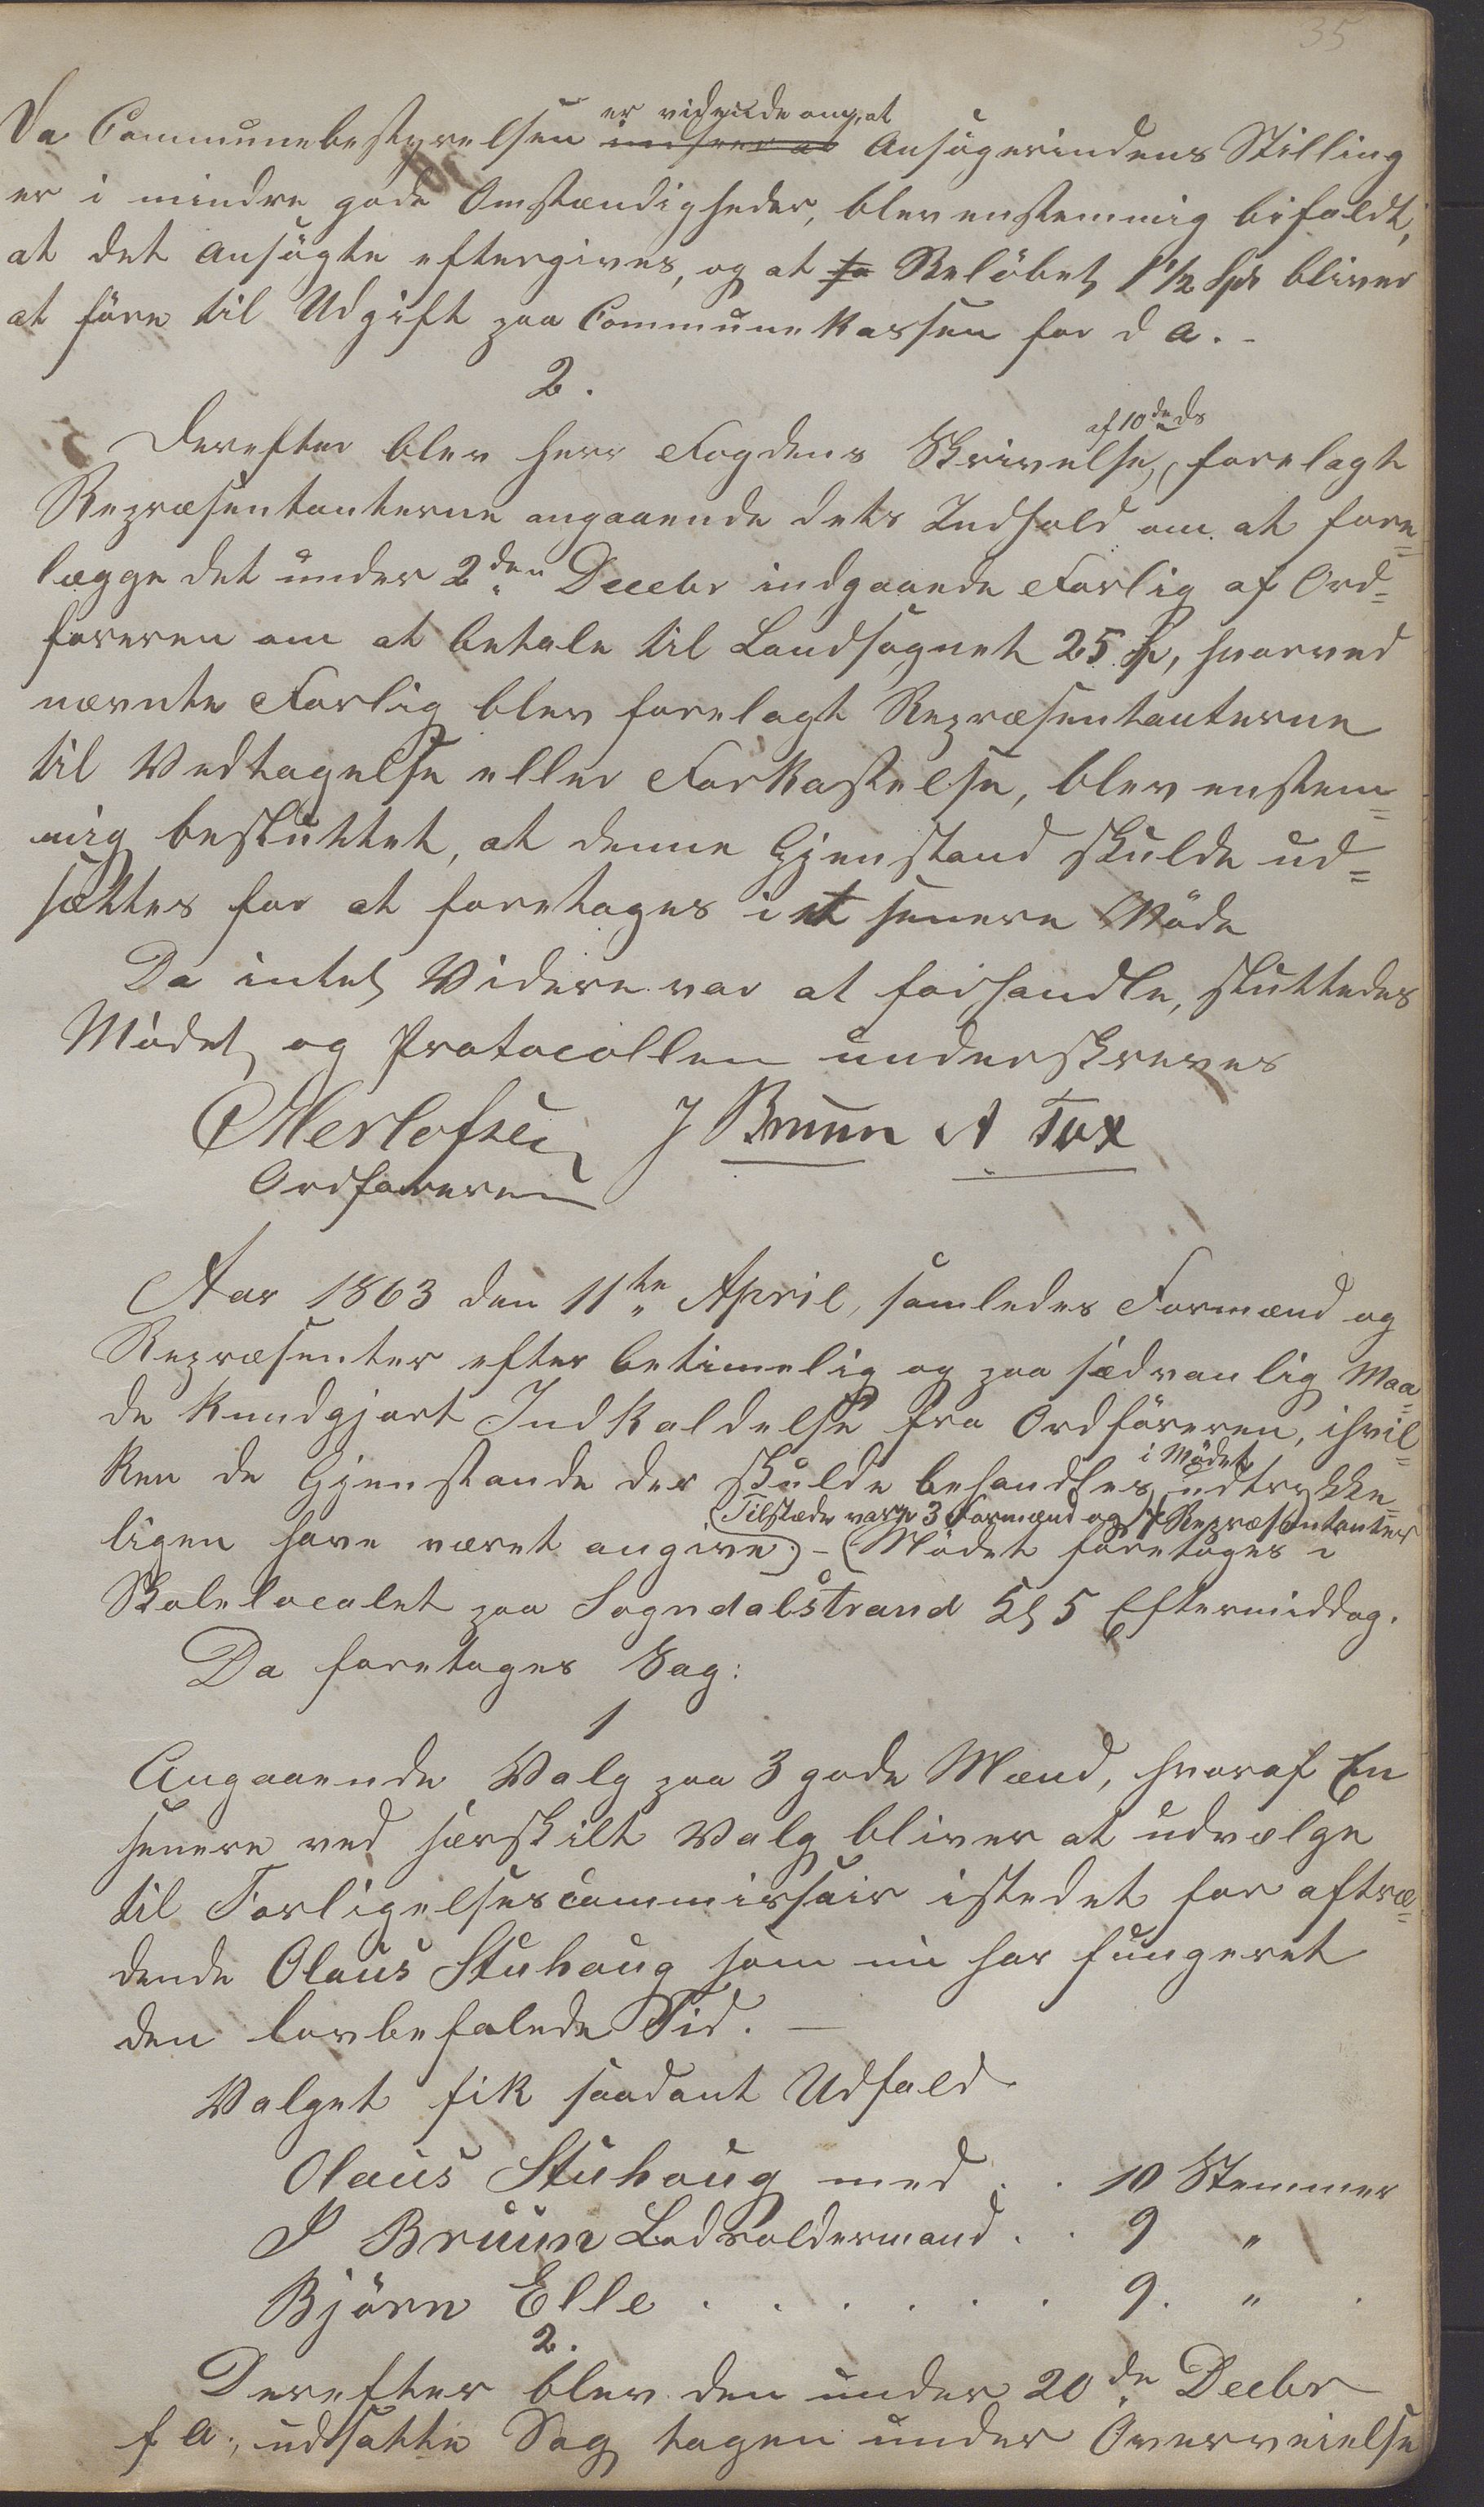 35
Da Communebestyrelsen er vidende om, at Ansøgerindens Stilling
er i mindre gode Omstændigheder, blev enstemmig bifaldt,
at det Ansøgte eftergives, og at Beløbet 1 1/2 Spd bliver
at føre til Udgift paa Communekassen for d A. -
2.
Derefter blev Herr Fogdens Skrivelse, af 10de ds forelagt
Repræsentanterne angaaende dets Indhold om at fore=
lægge det under 2den Decebr indgaaede Forlig af Ord=
føreren om at betale til Landsognet 25 Sp, hvorved
nævnte Forlig blev forelagt Repræsentanterne
til Vedtagelse eller Forkastelse, blev enstem=
mig besluttet, at denne Gjenstand skulde ud=
sættes for at foretages i et senere Møde
Da intet Videre var at forhandle, sluttedes
Mødet og Protocollen underskreves
J Bruun A Tox
Ordføreren
Aar 1863 den 11te April, samledes Formænd og
Repræsenter efter betimelig og paa sædvanlig Maa=
de kundgjort Indkaldelse fra Ordføreren, ihvil=
ken de Gjenstande der skulde behandles i Mødet udtrykke=
(Tilstæde vare 3 Formænd og 7 Repræsentanter
ligen have været angivne) - (Mødet foretoges i
Skolelocalet paa Sogndalstrand Kl 5 Eftermiddag.
Da foretoges Sag:
1
Angaaende Valg paa 3 gode Mænd, hvoraf En
senere ved særskilt Valg bliver at udvælge
til Forligelsescommissair istedet for aftræ=
dende Olaus Stuhaug som nu har fungeret
den lovbefalede Tid. -
Valget fik saadant Udfald
Olaus Stuhaug med . . 10 Stemmer
J Bruun Lodsoldermand . . 9 "
Bjørn Elle . . . . . . 9. " .
2.
Derefter blev den under 20de Decbr
f A., udsatte Sag tagen under Overveielse